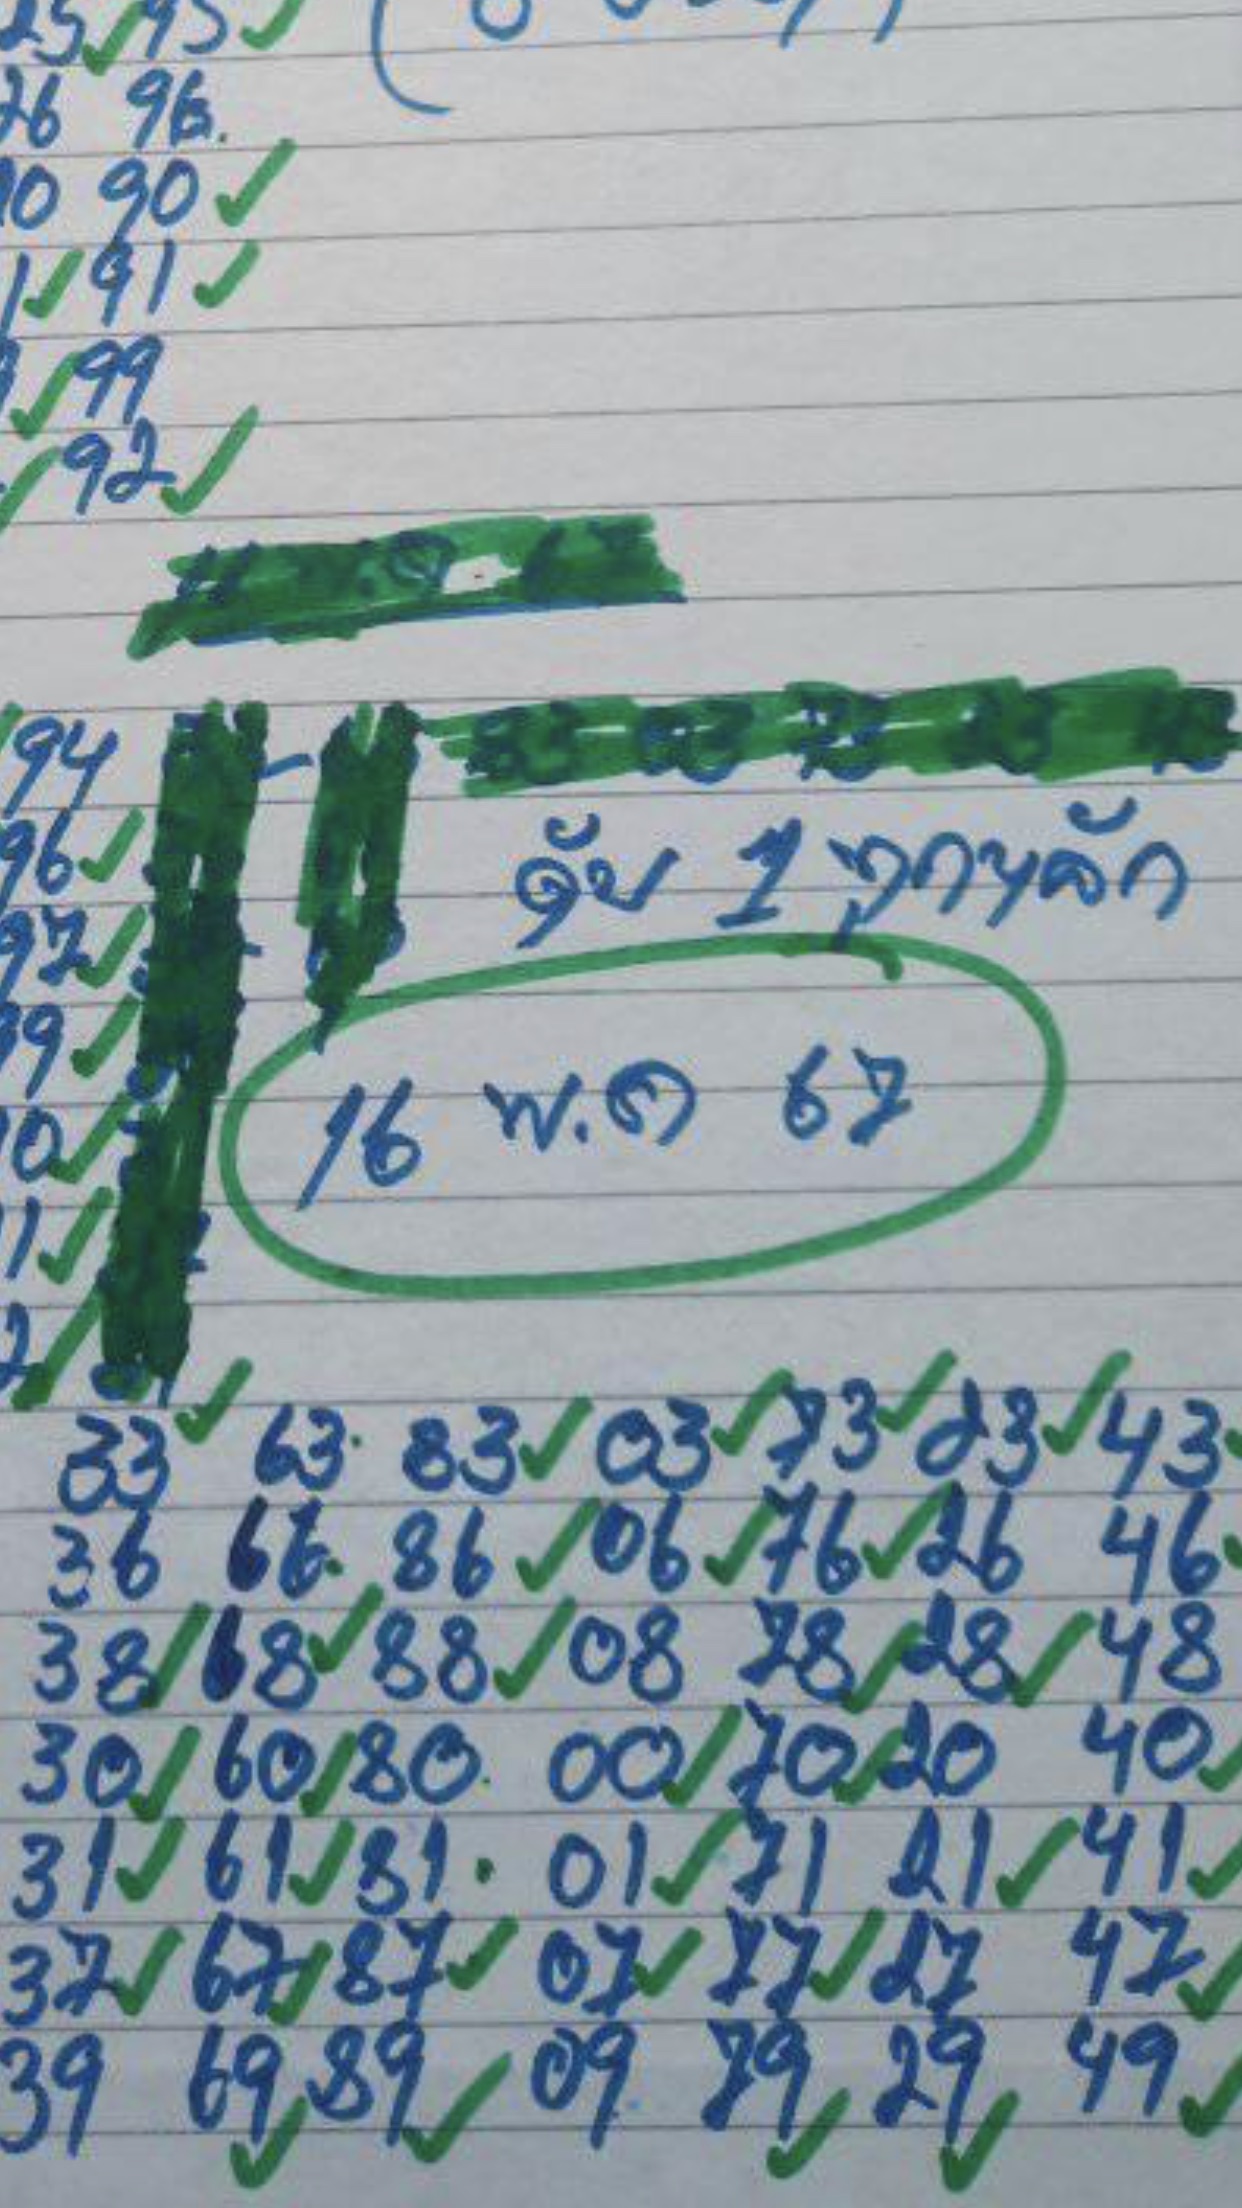 25 95
26 96
90
91
99
92
94
96
97
99
ดับ 1 ทุกหลัก
16 พ.ค 67
33 63 83 03 73 23 43
36 66 86 06 76 26 46
38 68 88 08 78 28 48
30 60 80 00 70 20 40
31 61 81 01 71 21 41
37 67 87 07 77 27 47
39 69 89 09 79 29 49